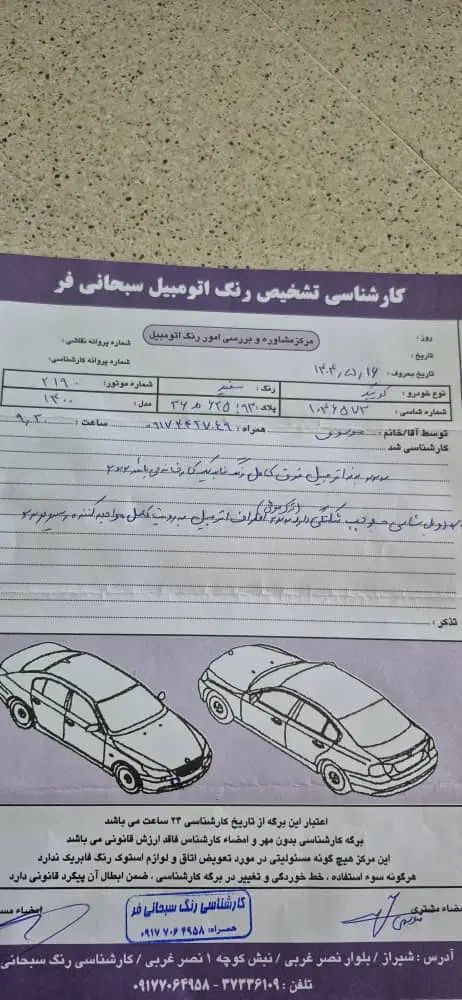 کارشناسی تشخیص رنگ اتومبیل سبحانی فر
مرکز مشاوره و بررسی امور رنگ اتومبیل
روز :
شماره پروانه نقاشی :
تاریخ :
شماره پروانه کارشناسی:
تاریخ بحروف : ۱۴۰۴/۵/۱۶
نوع خودرو : کوییک رنگ : سفید شماره موتور: ۲۱۹۰
شماره شاسی : ۱۰۴۶۵۷۳ پلاک ۹۳ ۶۲۵ ۳۶ مدل : ۱۴۰۰
توسط آقا/خانم : موسوی همراه : ۰۹۱۷ ساعت : ۹,۳۰
کارشناسی شد
بدنه اتومبیل فوق کامل رنگ فابریک کارخانه می باشد
شکستگی دارد اتومبیل رویت کامل
تذکر :
اعتبار این برگه از تاریخ کارشناسی ۲۴ ساعت می باشد
برگه کارشناسی بدون مهر و امضاء کارشناس فاقد ارزش قانونی می باشد
این مرکز هیچ گونه مسئولیتی در مورد تعویض اتاق و لوازم استوک رنگ فابریک ندارد
هرگونه سوء استفاده ، خط خوردگی و تغییر در برگه کارشناسی ، ضمن ابطال آن پیگرد قانونی دارد
امضاء مشتری
امضاء مس
کارشناسی رنگ سبحانی فر
همراه: ۰۹۱۷۷۰۶۴۹۵۸
آدرس : شیراز / بلوار نصر غربی / نبش کوچه ۱ نصر غربی / کارشناسی رنگ سبحانی
تلفن : ۳۷۳۳۶۱۰۹ - ۰۹۱۷۷۰۶۴۹۵۸